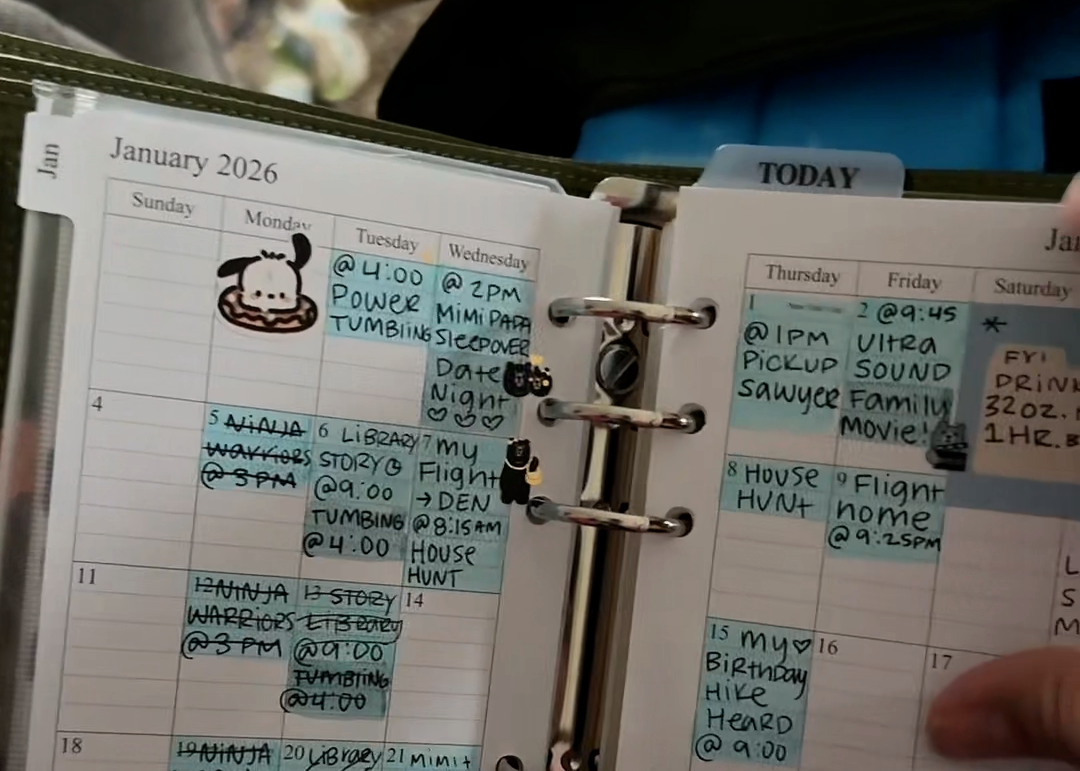 Jan
January 2026
Sunday
Monday
Tuesday
Wednesday
@ 4:00
POWER
TUMBLING
@ 2PM
MIMI PAPA
SLEEPOVER
Date
Night
♡ ♡ ♡
4
5 NINJA
WARRIORS
@ 3 PM
6 LIBRARY
STORY
@9:00
TUMBING
@ 4:00
7 my
Flight
→ DEN
@ 8:15AM
HOUSE
HUNT
11
12 NINJA
WARRIORS
@ 3 PM
13 STORY
LIBRARY
@9:00
TUMBLING
@4:00
14
18
19 NINJA
20 Library
21 MIMI +
TODAY
Thursday
Friday
Saturday
1
@ 1PM
PICKUP
SAWYER
2 @9:45
Ultra
SOUND
Family
Movie!
*
FYI
DRINK
32OZ.
1HR.
8 HOUSE
HUNT
9 Flight
home
@ 9:25PM
15 my♡
BIRTHDAY
HIKE
HEARD
@ 9:00
16
17